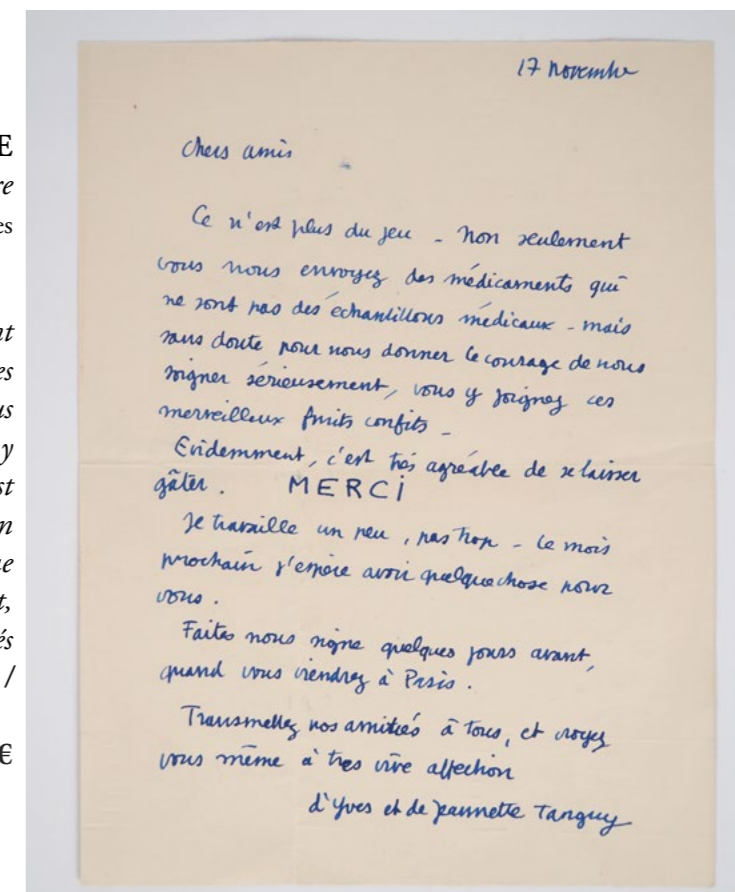 E
re
es
nt
es
us
y
st
n
ue
t,
és
/
€
17 novembre
Chers amis
Ce n'est plus du jeu - Non seulement
vous nous envoyez des médicaments qui
ne sont pas des échantillons médicaux - mais
sans doute pour nous donner le courage de nous
soigner sérieusement, vous y joignez ces
merveilleux fruits confits -
Evidemment, c'est très agréable de se laisser
gâter. MERCI
Je travaille un peu, pas trop - le mois
prochain j'espère avoir quelque chose pour
vous.
Faites nous signe quelques jours avant,
quand vous viendrez à Paris.
Transmettez nos amitiés à tous, et croyez
vous même à tres vive affection
d'Yves et de Jeannette Tanguy